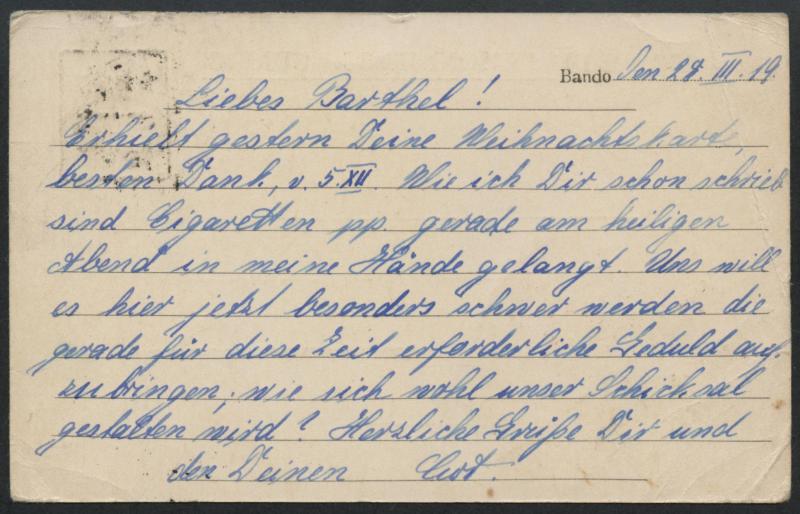 Bando den 28. III. 19.
Liebes Barthel!
Erhielt gestern Deine Weihnachtskarte,
besten Dank, v. 5. XII. Wie ich Dir schon schrieb
sind Cigaretten pp. gerade am heiligen
Abend in meine Hände gelangt. Uns will
es hier jetzt besonders schwer werden die
gerade für diese Zeit erforderliche Geduld auf-
zubringen, wie sich wohl unser Schicksal
gestalten wird? Herzliche Grüße Dir und
den Deinen